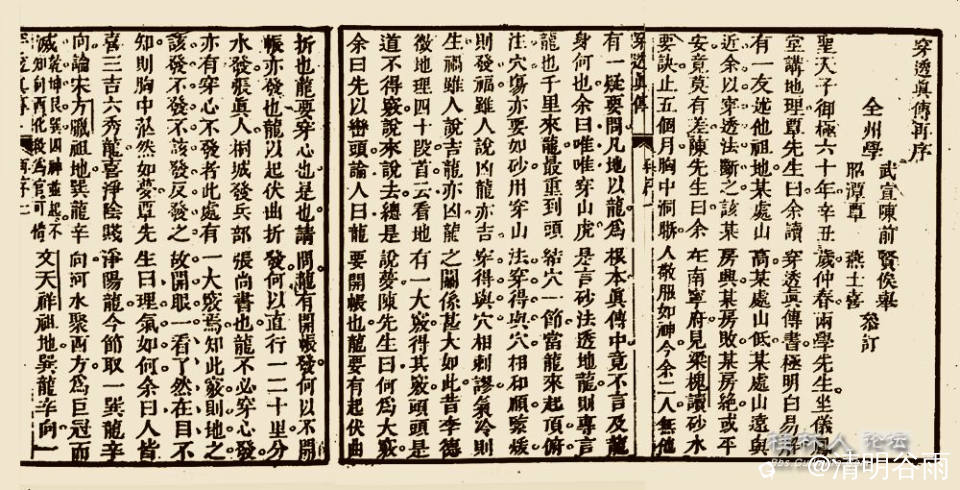 穿透真傳再序
全州學
武宣陳前賢俟皋
昭潭覃燕士喜
叅訂
聖天子御極六十年辛丑歲仲春兩學先生坐儀
堂講地理覃先生曰余讀穿透真傳書極明白易
有一友說他祖地某處山高某處山低某處山遠與
近余以穿透法斷之該某房興某房敗某房絕或平
安竟莫有差陳先生曰余在南寧府見梁槐讀砂水
要訣止五個月胸中洞聯人敬服如神今余二人無他
穿透真傳
再序
一
有一疑要問凡地以龍為根本真傳中竟不言及龍
身何也余曰唯唯穿山虎是言砂法透地龍則專言
龍也千里來龍最重到頭結穴一節當龍來起頂俯
注穴傷亦要如砂用穿山法穿得與穴相和順緊緩
則發福雖人說凶龍亦吉穿得與穴相剌謬氣冷則
生禍雖人說吉龍亦凶龍之關係甚大如此昔李德
徵地理四十段首云看地有一大竅得其竅頭頭是
道不得竅說來說去總是說夢陳先生曰何為大竅
余曰先以巒頭論人曰龍要開帳也龍要有起伏曲
折也龍要穿心也是也請問龍有開帳發何以不開
帳亦發也龍以起伏曲折發何以直行一二十里分
水發張真人桐城發兵部張尚書也龍不必穿心發
亦有穿心不發者此處有一大竅焉知此竅則地之
該發不發不該發反發之故開眼一看了然在目不
知則胸中茫然如夢覃先生曰理氣如何余曰人皆
喜三吉六秀龍喜淨陰賤淨陽龍今節取一巽龍辛
向論宋方臘祖地巽龍辛向河水聚酉方為巨冠而
滅乾坤艮巽四神並起不知向酉為官可倚文天祥祖地巽龍辛向
桂林人论坛
@清明谷雨